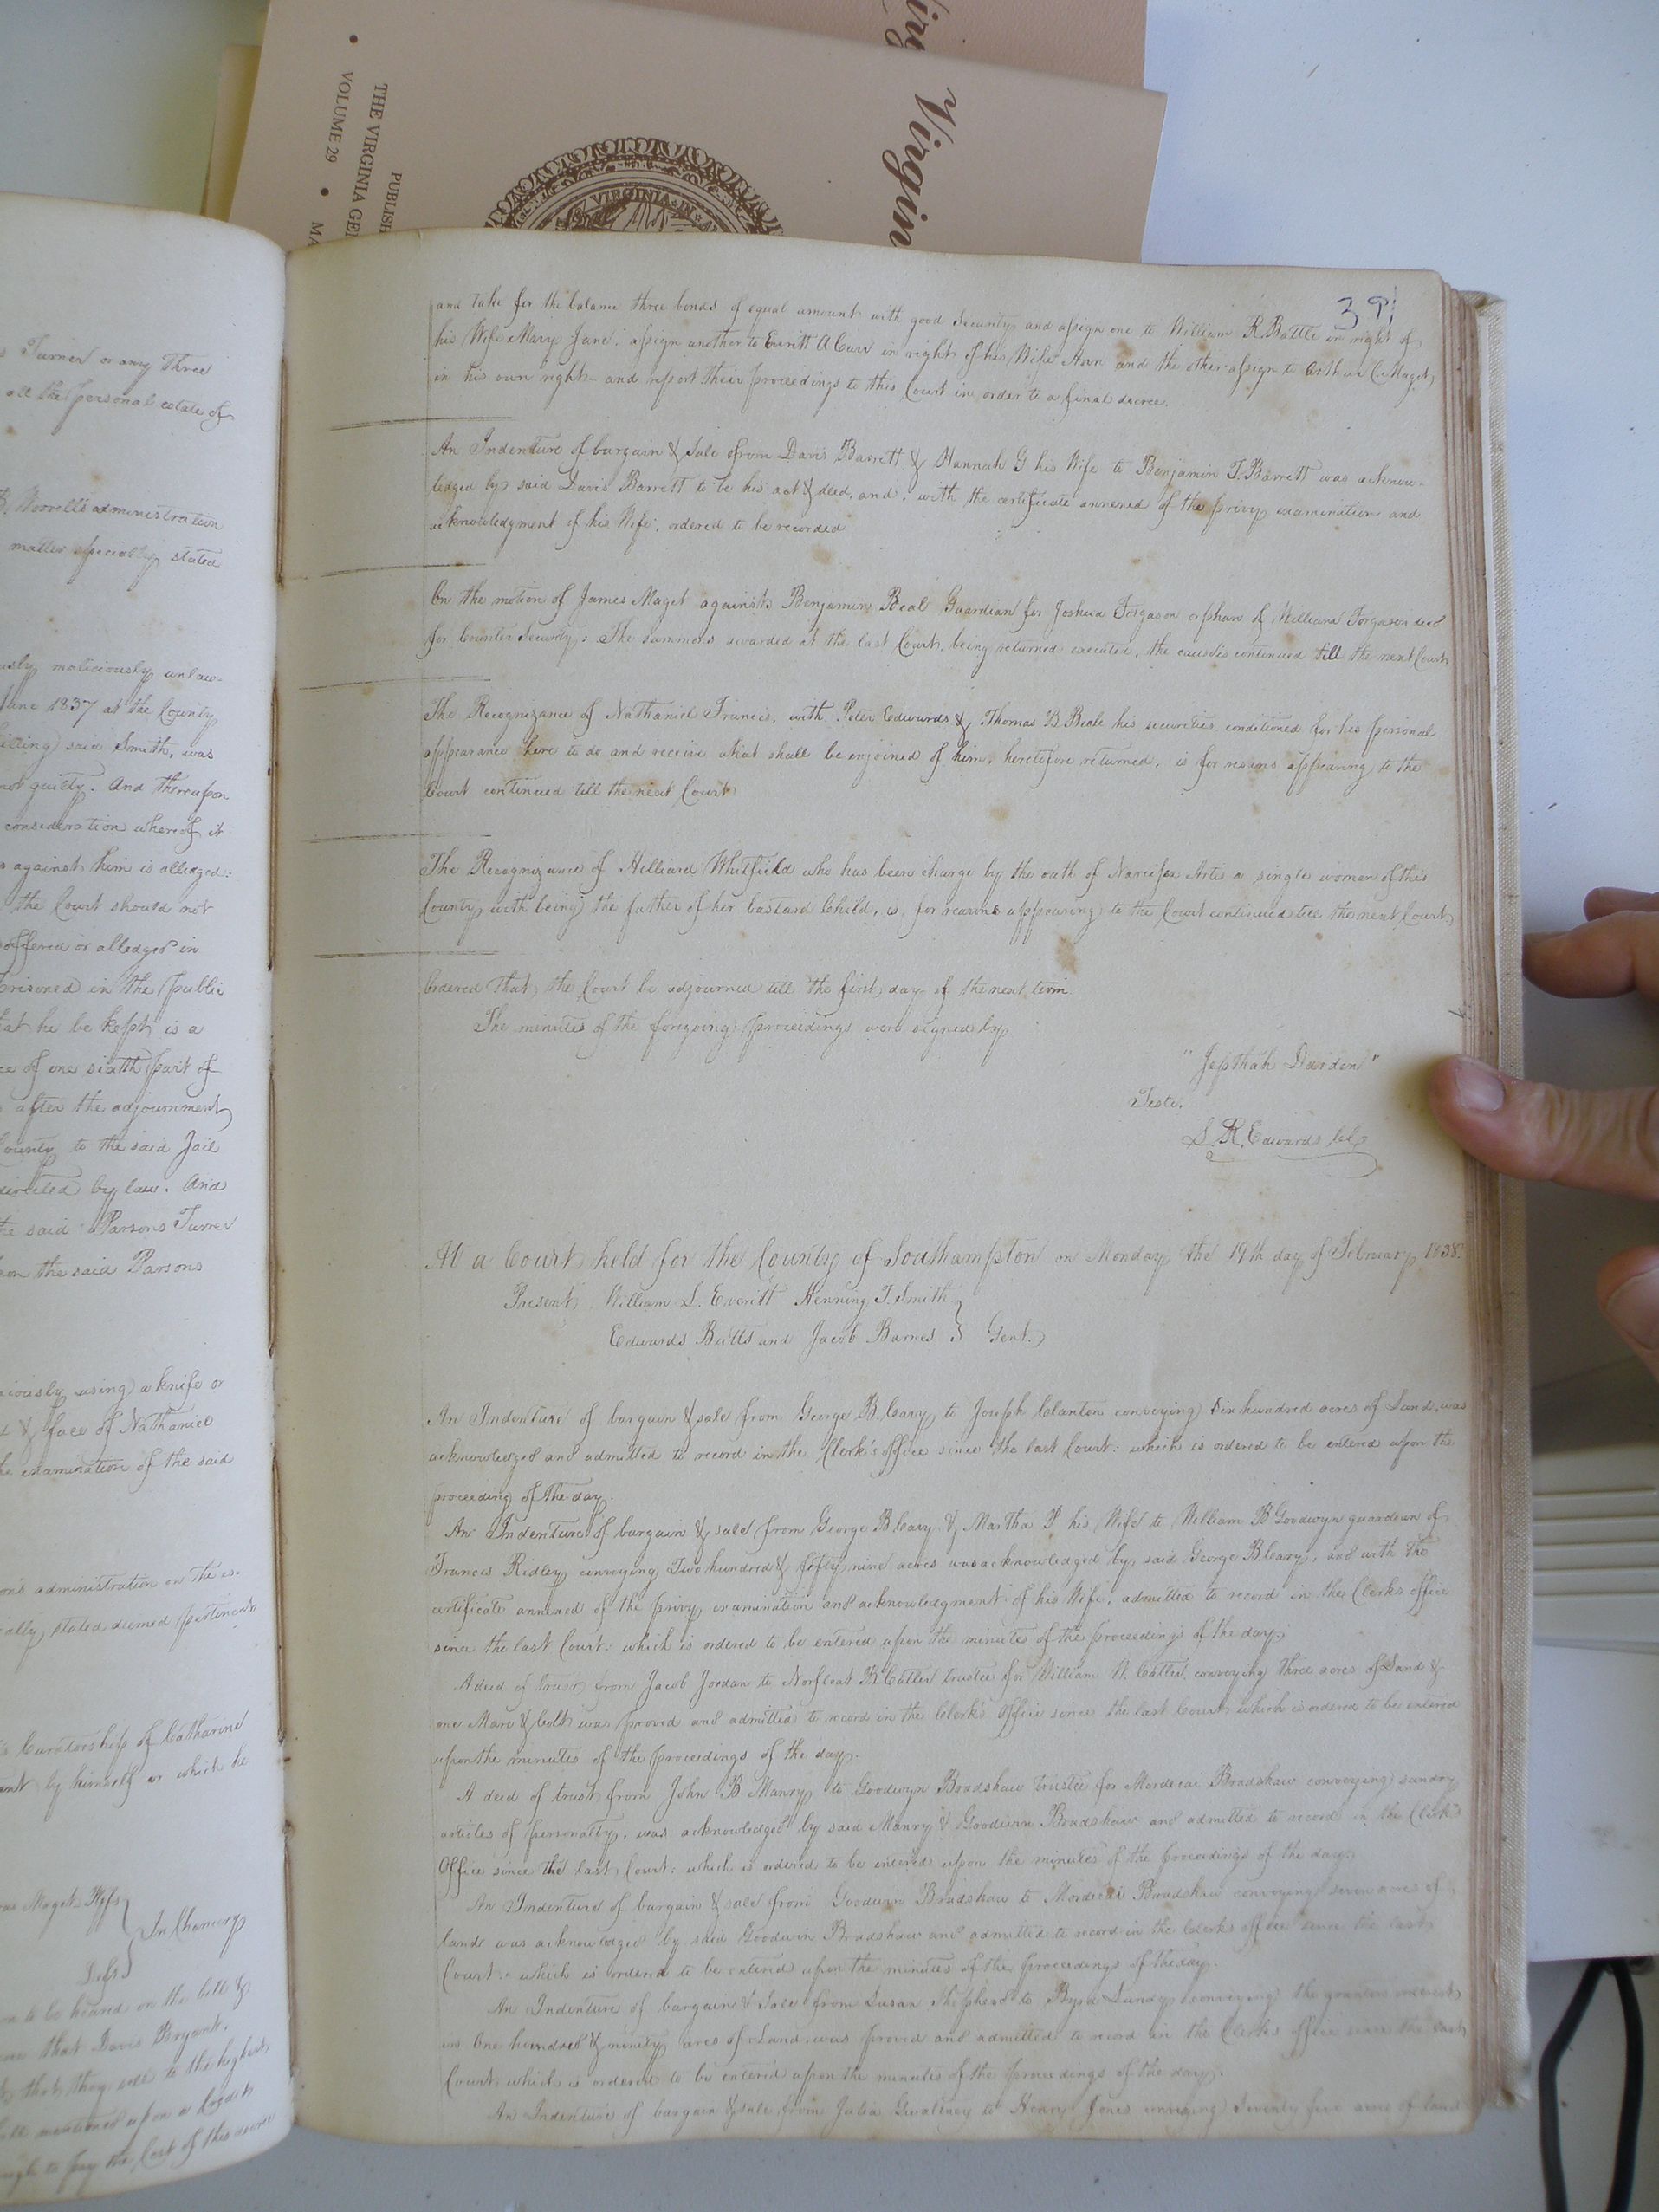 Virgin
PUBLISH
THE VIRGINIA GE
VOLUME 29
MA
VIRGINIA IN
s Turner or any Three
all the personal estate of
Worrell's administration
matter specially stated
usly maliciously unlaw-
June 1837 at the County
killing said Smith, was
not guilty. And thereupon
consideration whereof it
s against him is alledged:
the Court should not
offered or alledged in
prisoned in the public
at he be kept is a
ce of one sixth part of
after the adjournment
County to the said Jail
directed by law. And
the said Parsons Turner
on the said Parsons
ciously using a knife or
& face of Nathaniel
he examination of the said
on's administration on the es-
ally stated deemed pertinent
s Curatorship of Catharine
ant by himself or which he
In Chancery
n to be heard on the bill &
that Davis Bryant,
that they sell to the highest
mentioned upon a Credit
to pay the Cost of this
39
and take for the balance three bonds of equal amount with good Security and assign one to William R. Battle in right of
his Wife Mary Jane: assign another to Everitt A Carr in right of his Wife Ann and the other assign to Arthur C. Maget,
in his own right and report their proceedings to this Court in order to a final decree.
An Indenture of bargain & Sale from Davis Barrett & Hannah G his Wife to Benjamin T. Barrett was acknow-
ledged by said Davis Barrett to be his act & deed, and, with the certificate annexed of the privy examination and
acknowledgment of his Wife, ordered to be recorded
On the motion of James Maget against Benjamin Beal Guardian for Joshua Forgason orphan of William Forgason decd
for Counter Security: The summons awarded at the last Court, being returned executed, the cause is continued till the next Court
The Recognizance of Nathaniel Francis, with Peter Edwards & Thomas B. Beale his securities conditioned for his personal
appearance here to do and receive what shall be enjoined of him, heretofore returned, is for reasons appearing to the
Court continued till the next Court
The Recognizance of Hilliard Whitfield who has been charge by the oath of Narcissa Artis a single woman of this
County with being the father of her bastard Child, is, for reasons appearing to the Court continued till the next Court
Ordered That the Court be adjourned till the first day of the next term
The minutes of the foregoing proceedings were signed by
"Jepthah Darden"
Teste.
L. R. Edwards Clk
At a Court held for the County of Southampton on Monday the 19th day of February 1838.
Present William L. Everitt Henning T. Smith
Edwards Butts and Jacob Barnes } Gent.
An Indenture of bargain & sale from George B. Cary to Joseph Clanton conveying Six hundred acres of Land, was
acknowledged and admitted to record in the Clerk's office since the last Court: which is ordered to be entered upon the
proceeding of the day.
An Indenture of bargain & sale from George B Cary & Martha P his Wife to William B Goodwyn guardian of
Frances Ridley conveying Two hundred & fifty nine acres was acknowledged by said George B. Cary, and with the
certificate annexed of the privy examination and acknowledgment of his Wife, admitted to record in the Clerks office
since the last Court: which is ordered to be entered upon the minutes of the proceedings of the day.
A deed of trust from Jacob Jordan to Norfleat B. Cutler trustee for William N. Cutler, conveying three acres of Land &
one Mare & Colt was proved and admitted to record in the Clerk's Office since the last Court which is ordered to be entered
upon the minutes of the proceedings of the day.
A deed of trust from John B. Manry to Goodwyn Bradshaw Trustee for Mordecai Bradshaw conveying sundry
articles of personalty, was acknowledged by said Manry & Goodwin Bradshaw and admitted to record in the Clerk's
Office since the last Court: which is ordered to be entered upon the minutes of the proceedings of the day.
An Indenture of bargain & sale from Goodwin Bradshaw to Mordecai Bradshaw conveying seven acres of
land was acknowledged by said Goodwin Bradshaw and admitted to record in the Clerks office since the last
Court: which is ordered to be entered upon the minutes of the proceedings of the day.
An Indenture of bargain & Sale from Susan Shepherd to Byrd Lundy conveying the grantors interest
in One hundred & ninety acres of Land was proved and admitted to record in the Clerks office since the last
Court which is ordered to be entered upon the minutes of the proceedings of the day.
An Indenture of bargain & sale from Julia Gwaltney to Henry Jones conveying Seventy five acres of land